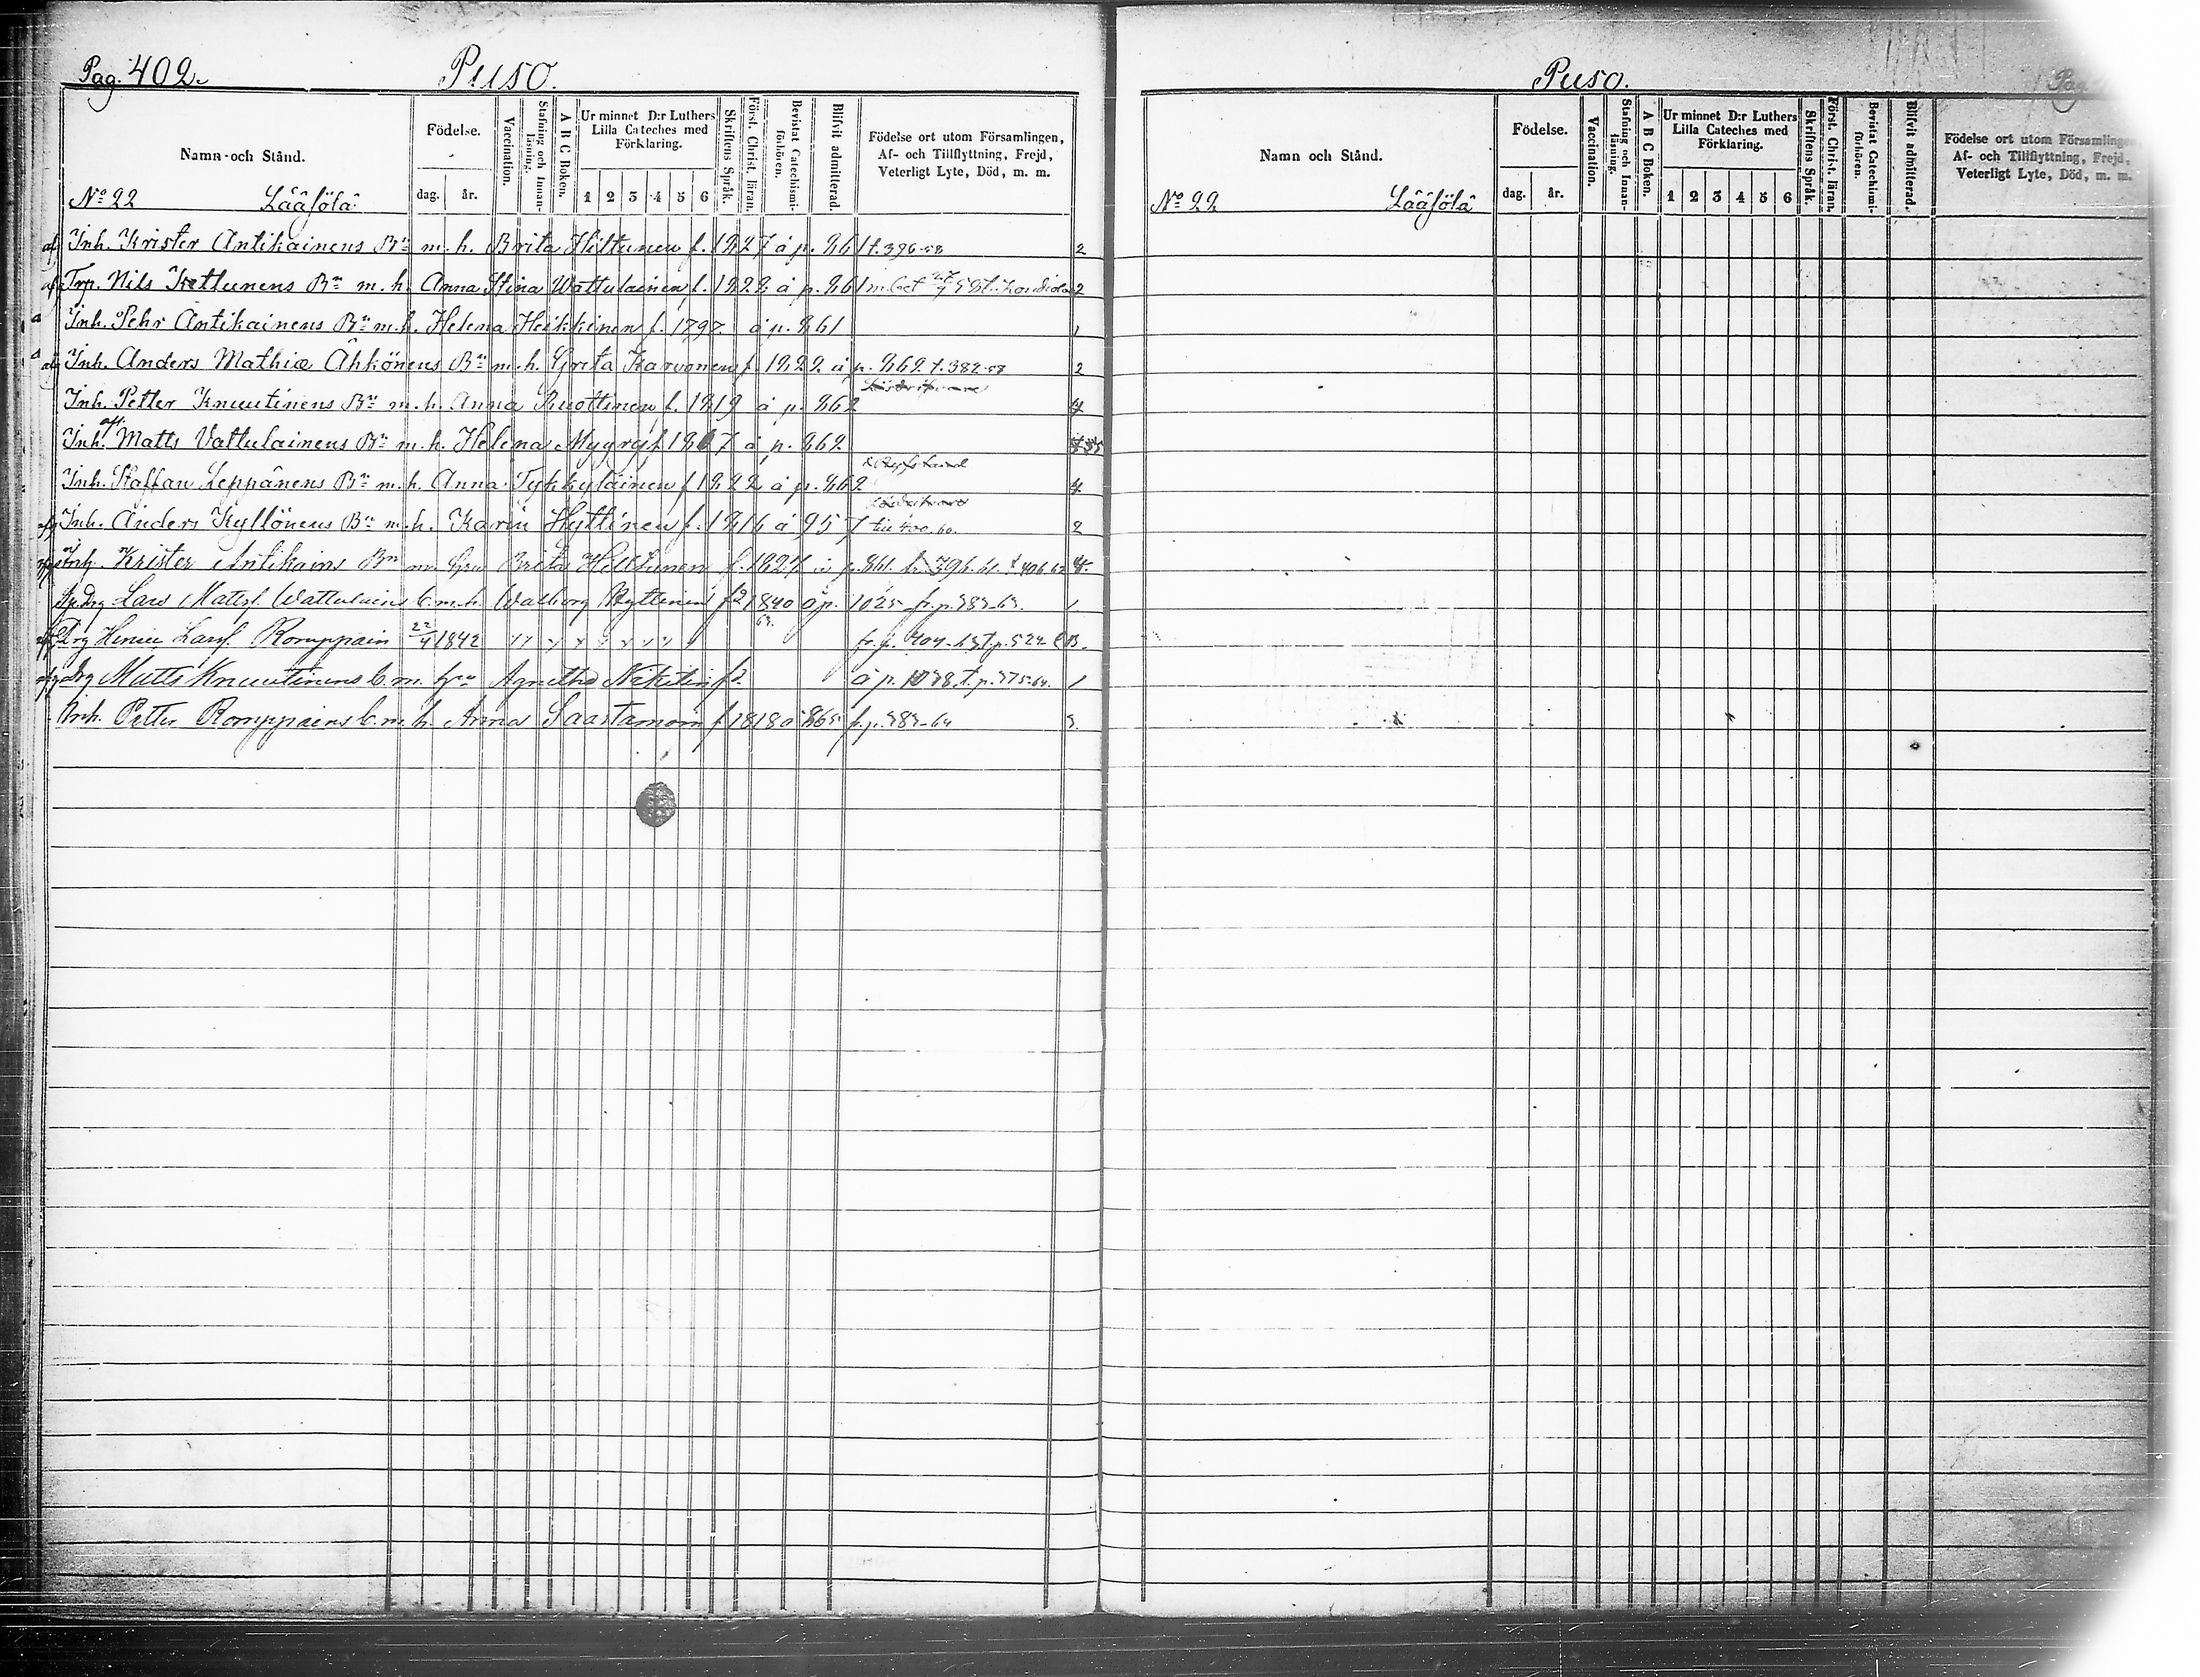 Pag. 402.
Puso.
Namn och Stånd.
Födelse.
dag.
år.
Vaccination.
Stafning och Innan-läsning.
A B C Boken.
Ur minnet D:r Luthers
Lilla Cateches med
Förklaring.
1 2 3 4 5 6
Skriftens Språk.
Först. Christ. läran.
Bevistat Catechismi-förhören.
Blifvit admitterad.
Födelse ort utom Församlingen,
Af- och Tillflyttning, Frejd,
Veterligt Lyte, Död, m. m.
No 22 Lääsölä
Inh. Krister Antikainens Bn m. h. Brita Hiltunen f. 1827 å p. 861 t. 396-58 2
Trp. Nils Kettunens Bn m. h. Anna Stina Wattulainen f. 1828 å p. 861 m. bet 2
Inh. Pehr Antikainens Bn m. h. Helena Heikkinen f. 1797. å p. 861 1
Inh. Anders Mathiæ Ähkönens Bn m. h. Greta Karvonen f. 1822 å p. 862 t. 382-58 2
Inh. Petter Knuutinens Bn m. h. Anna Ruottinen f. 1819 å p. 862
Inh. Matts Vattulainens Bn m. h. Helena Myyry f. 1807 å p. 862
Inh. Staffan Leppänens Bn m. h. Anna Tykkyläinen f 1822 å p. 862
Inh. Anders Kyllönens Bn m. h. Karin Hyttinen f. 1816 å 957 till 400.60. 2
Inh. Krister Antikains Bn m. Hru Brita Hiltunen f. 1827 å p. 861. fr. 396. 61. t 406.62
Lars Matsf. Wattulains b. m. h. Walborg Hyttinen f 1840 å p. 1025 fr. p. 383-63. 1
Drg Henric Larsf. Romppain 22/4 1842 fr. p. 404-63 t. p. 522
Drg Matts Knuutinens b. m. hru Agnetha Nikitin å p. 1038. t. p. 375-64. 1
Inh. Petter Romppains b. m. h. Anna Saastamoin f 1818 å 865 fr. p. 383-64 3.
Puso.
Namn och Stånd.
Födelse.
dag.
år.
Vaccination.
Stafning och Innan-läsning.
A B C Boken.
Ur minnet D:r Luthers
Lilla Cateches med
Förklaring.
1 2 3 4 5 6
Skriftens Språk.
Först. Christ. läran.
Bevistat Catechismi-förhören.
Blifvit admitterad.
Födelse ort utom Församlingen
Af- och Tillflyttning, Frejd,
Veterligt Lyte, Död, m. m.
No 22 Lääsölä